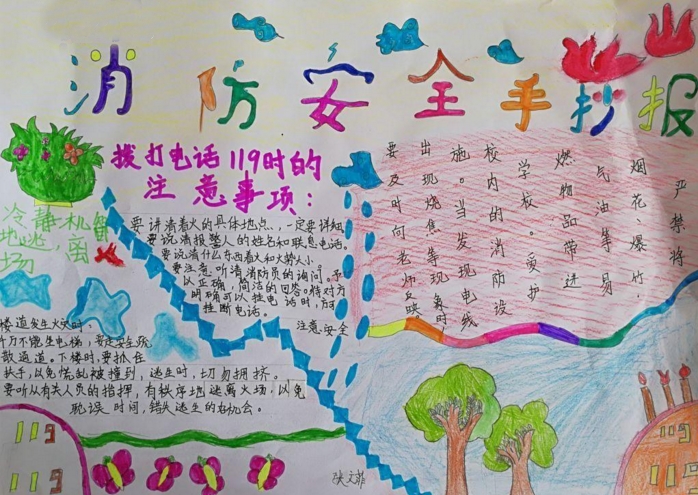 消防安全手抄报
拨打电话119时的
注意事项:
冷静机智
地逃离
场
要讲清着火的具体地点、一定要详细
要说清报警人的姓名和联息电话。
要说清什么东西着火和火势大小
要注意听清消防员的询问,予
以正确,简洁的回答。待对方
明确可以挂电话时,方可
挂断电话。
注意安全
楼道发生火灾时:
千万不能坐电梯,要走安全疏
散通道。下楼时,要抓住
扶手,以免慌乱被撞到,逃生时,切勿拥挤。
要听从有关人员的指挥,有秩序地逃离火场,以免
耽误时间,错失逃生的好机会。
严禁将
烟花、爆竹、
气油等易
燃物品带进
学校。爱护
校内的消防设
施。当发现电线
出现烧焦等现象时,
要及时向老师反映。
119
119
119
119